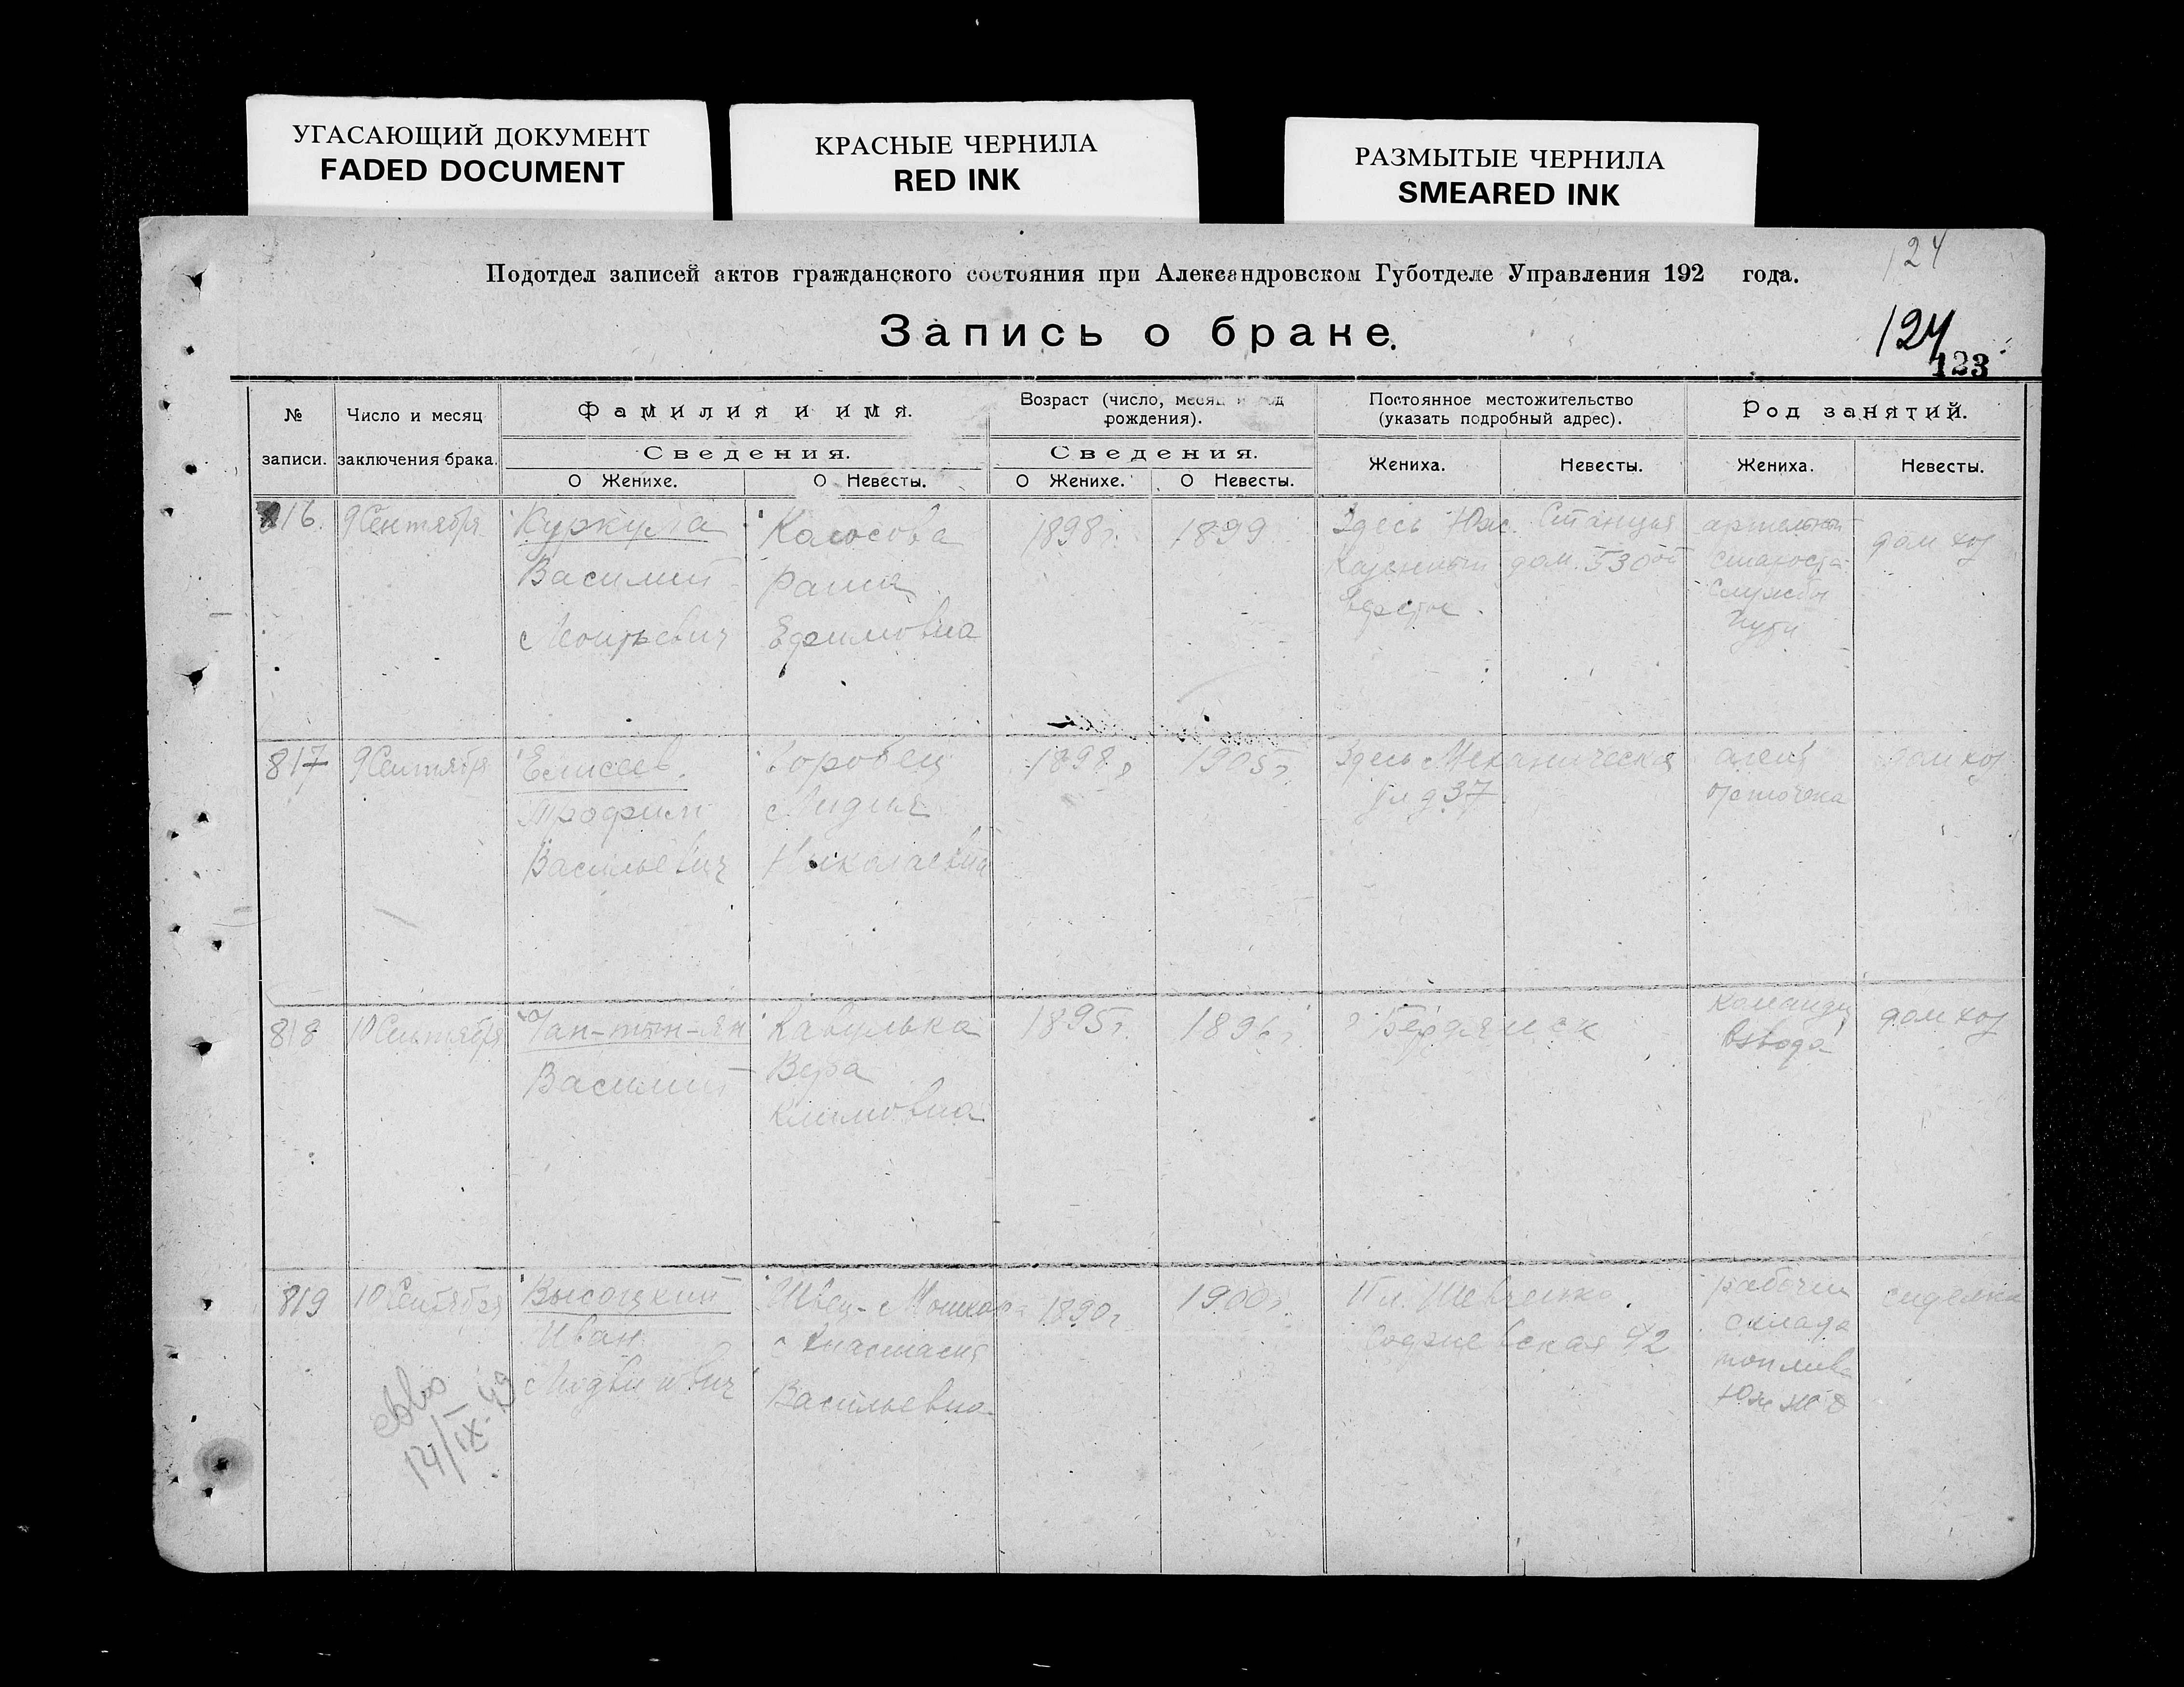 УГАСАЮЩИЙ ДОКУМЕНТ
FADED DOCUMENT
КРАСНЫЕ ЧЕРНИЛА
RED INK
РАЗМЫТЫЕ ЧЕРНИЛА
SMEARED INK
124
Подотдел записей актов гражданского состояния при Александровском Губотделе Управления 192 года.
Запись о браке.
124
123
№ записи.
Число и месяц заключения брака.
Фамилия и имя.
Сведения.
О Женихе.
О Невесты.
Возраст (число, месяц и год рождения).
Сведения.
О Женихе.
О Невесты.
Постоянное местожительство
(указать подробный адрес).
Жениха.
Невесты.
Род занятий.
Жениха.
Невесты.
816.
9 Сентября
Куркула
Василий
Колосова
Ефимовна
1898 г.
1899
Здесь Юж. Станция
дом. 530 ой
староста
Службы
Пути
дом хоз
817
9 Сентября
Елисеев
Трофим
Васильевич
Лидия
Николаевна
1898 г
1905 г
Здесь Механическая
ул д 37
агент
дом хоз
818
10 Сентября
Василий
Вера
Климовна
1895 г
1896 г
г Бердянск
Командир
взвода
дом хоз
819
10 Сентября
Высоцкий
Иван
Швец-
Анастасия
Васильевна
1890 г
1900 г.
Пл. Шевченко.
42
рабочий
склада
топлива
Юж ж д
сиделка
14/IX-